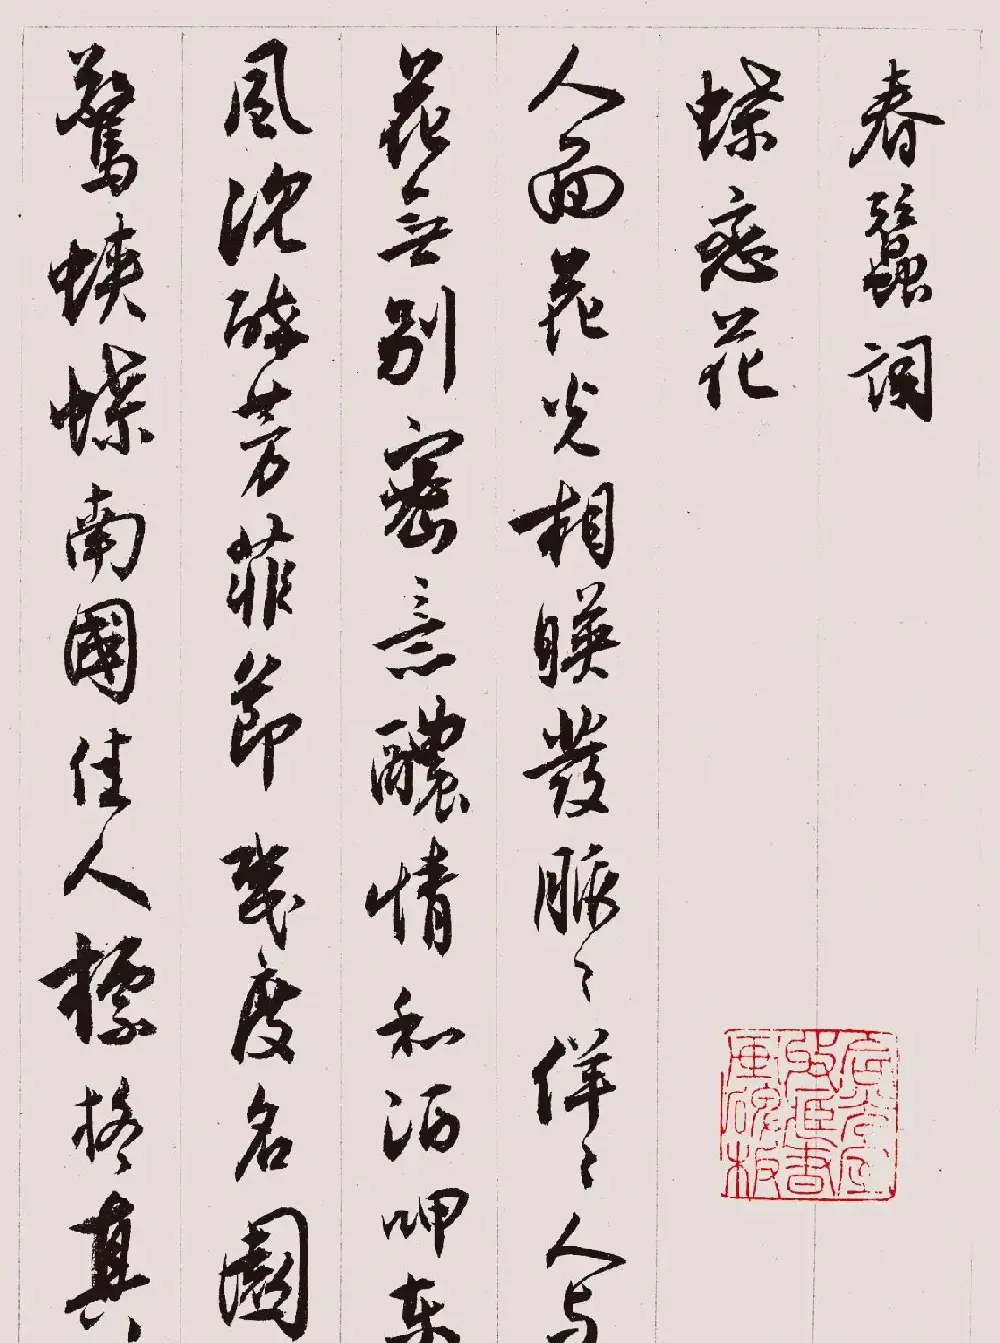 春蠶詞
蝶戀花
人面花光相暎發脈〻佯〻人与
花無別密意醲情和酒呷東
風沈醉芳菲節幾度名園
驚蛺蝶南國佳人標格真